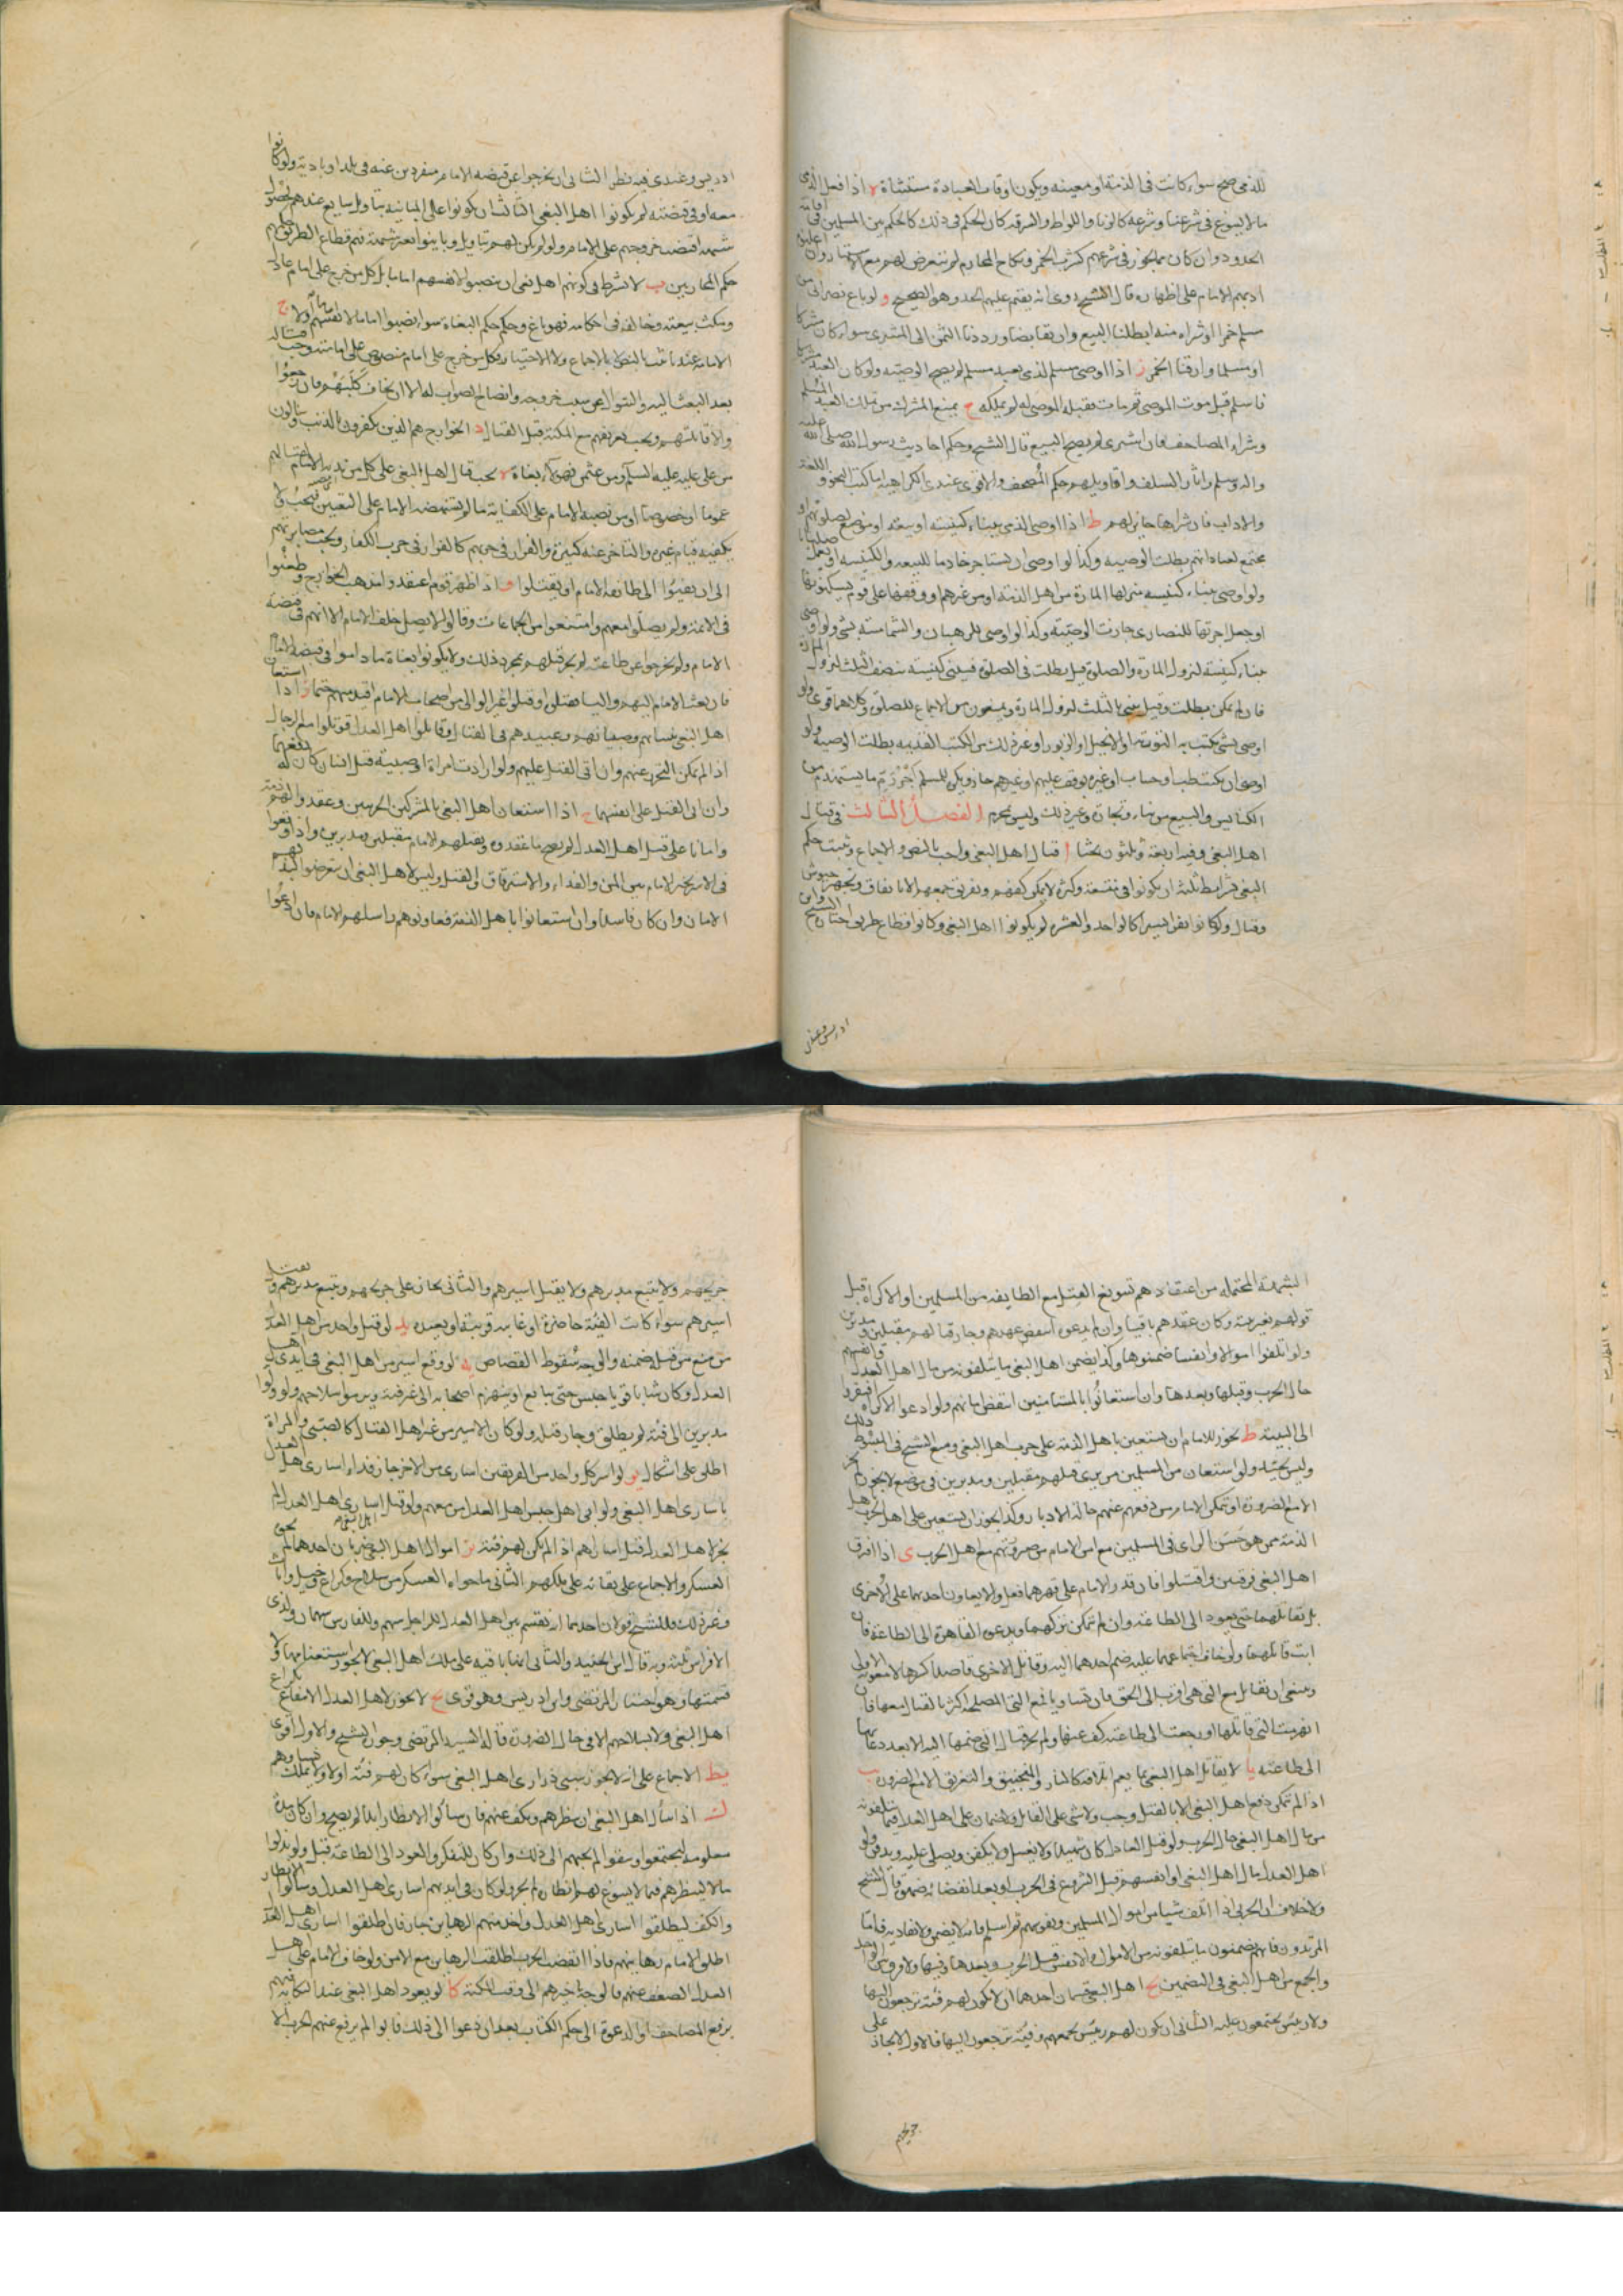 للذمي صح سواء كانت في الذمة او معينة ويكون اوقات العبادة مستثناة ه اذا فعل الذمي
ما لا يسوغ في شرعنا وشرعه كالزنا واللواط والسرقة كان الحكم في ذلك كالحكم بين المسلمين في اقامة
الحدود وان كان مما يجوز في شرعهم كشرب الخمر ونكاح المحارم لم نتعرض لهم مع الاستتار وان اعلنوه
ادبهم الامام على اظهاره قال الشيخ روى انه يقيم عليهم الحد وهو الصحيح و لو باع نصراني من
مسلم خمرا او شراء منه ابطلنا البيع وان تقابضا ورددنا الثمن الى المشتري سواء كان مشركا
او مسلما وارقنا الخمر ز اذا اوصى مسلم لذمي بعبد مسلم لم يصح الوصية ولو كان العبد مشركا
فاسلم قبل موت الموصي ثم مات فقبله الموصى له لم يملكه ح يمنع المشرك من تملك العبد المسلم
وشراء المصاحف فان اشترى لم يصح البيع قال الشيخ وحكم احاديث رسول الله صلى الله عليه
واله وسلم واثار السلف واقاويلهم حكم المصحف والاقوى عندي الكراهية اما كتب النحو و اللغة
والاداب فان شراها جايز لهم ط اذا اوصى الذمي ببناء كنيسة او بيعة او موضع لصلوتهم او
مجتمع لعباداتهم بطلت الوصية وكذا لو اوصى ان يستاجر خادما للبيعة والكنيسة او يعمل صلبانا
ولو اوصى ببناء كنيسة ينزلها المارة من اهل الذمة او من غيرهم او وقفها على قوم يسكنونها
او جعل اجرتها للنصارى جازت الوصية وكذا لو اوصى للرهبان والشمامسة بشئ ولو اوصى
ببناء كنيسة لنزول المارة والصلوة قيل بطلت في الصلوة فيبنى كنيسة بنصف الثلث لنزول المارة
فان لم يمكن بطلت وقيل يبنى بالثلث لنزول المارة ويمنعون من الاجتماع للصلوة وكلاهما قوي ولو
اوصى بشئ يكتب به التورية او الانجيل او الزبور او غير ذلك من الكتب القديمة بطلت الوصية ولو
اوصى ان يكتب طبا وحساب او غيره يوقف عليهم او غيرهم جاز ويكره للمسلم اجرة رم ما يستهدم من
الكنايس والبيع من بناء ونجارة وغير ذلك وليس بمحرم الفصل الثالث في قتال
اهل البغي وفيه اربعة وثلثون بحثا ا قتال اهل البغي واجب بالنص والاجماع ويثبت حكم
البغي بشرايط ثلثة ان يكونوا في منعة وكثرة لا يمكن كفهم وتفريق جمعهم الا بانفاق وتجهيز جيوش
وقتال ولو كانوا نفرا يسيرا كالواحد والعشرة لم يكونوا اهل البغي وكانوا قطاع طريق اختاره الشيخ وابن
ادريس وعندي
ادريس وعندي فيه نظر الثاني ان يخرجوا عن قبضة الامام منفردين عنه في بلد او بادية ولو كانوا
معه او في قبضته لم يكونوا اهل البغي الثالث ان يكونوا على المباينة بتاويل سايغ عندهم بحصول
شبهة اقتضت خروجهم على الامام ولو لم يكن لهم تاويل وباينوا بغير شبهة فهم قطاع الطريق حكمهم
حكم المحاربين ب لا يشترط في كونهم اهل بغي ان ينصبوا لانفسهم اماما بل كل من خرج على امام عادل
ونكث بيعته وخالفه في احكامه فهو باغ وحكمه حكم البغاة سواء نصبوا اماما لانفسهم ام لا ج
الامامة عندنا تثبت بالنص لا بالاجماع ولا الاختيار فكل من خرج على امام منصوص على امامته وجب قتاله
بعد البعث اليه والسؤال عن سبب خروجه وايضاح الصواب له الا ان يخاف كلبهم فان رجعوا
والا قاتلهم ويجب تعريفهم مع المكنة قبل القتال د الخوارج هم الذين يكفرون بالذنب وينالون
من علي عليه السلام ومن عثمن فهؤلاء بغاة ه يجب قتال اهل البغي على كل من ندبه الامام لقتالهم
عموما او خصوصا او من نصبه الامام على الكفاية ما لم يستنهضه الامام على التعيين فيجب ولا
يكفيه قيام غيره والتاخر عنه كبيرة والفرار في حربهم كالفرار في حرب الكفار ويجب مصابرتهم
الى ان يفيئوا الى طاعة الامام او يقتلوا و اذا اظهر قوم اعتقدوا مذهب الخوارج وطعنوا
في الائمة ولم يصلوا معهم وامتنعوا من الجماعات وقالوا لا يصل خلف الامام الا انهم في قبضة
الامام ولم يخرجوا عن طاعته لم يجز قتلهم بمجرد ذلك ولا يكونوا بغاة ما داموا في قبضة الامام
فان بعث الامام اليهم واليا فقتلوه او قتلوا غير الوالي من اصحاب الامام اقيد منهم حتما ز اذا استعان
اهل البغي بنسائهم وصبيانهم وعبيدهم في القتال وقاتلوا اهل العدل قوتلوا مع الرجال
اذا لم يمكن التحرز عنهم وان اتى القتل عليهم ولو ارادت امراة او صبية قتل انسان كان له دفعهما
وان اتى القتل على انفسهما ح اذا استعان اهل البغي بالمشركين الحربيين وعقدوا لهم ذمة
وامانا على قتل اهل العدل لم يصح ما عقدوه ويقتلهم الامام مقبلين ومدبرين واذا وقعوا
في الاسر تخير الامام بين المن والفداء والاسترقاق والقتل وليس لاهل البغي ان يتعرضوا لهم
الامان وان كان فاسدا وان استعانوا باهل الذمة فعاونوهم راسلهم الامام فان ادعوا
الشبهة المحتملة من اعتقادهم تسويغ القتل مع الطايفة من المسلمين او الاكراه قبل
قولهم بغير بينة وكان عقدهم باقيا وان لم يدعوه انتقض عهدهم وجاز قتالهم مقبلين ومدبرين
ولو اتلفوا اموالا وانفسا ضمنوها وكذا يضمن اهل البغي ما يتلفونه من مال اهل العدل وانفسهم
حال الحرب وقبلها وبعدها وان استعانوا بالمستامنين انتقض امانهم ولو ادعوا الاكراه افتقروا
الى البينة ط يجوز للامام ان يستعين باهل الذمة على حرب اهل البغي ومنع الشيخ في المبسوط ذلك
وليس بجيد ولو استعان من المسلمين من يرى قتلهم مقبلين ومدبرين في موضع لا يجوز لم يجز
الا مع الضرورة او تمكن الامام من دفعهم عنهم حالة الادبار وكذا يجوز ان يستعين على اهل الحرب باهل
الذمة ممن هو حسن الراي في المسلمين مع امن الامام من صيرورتهم مع اهل الحرب ى اذا افترق
اهل البغي فرقتين واقتتلوا فان قدر الامام على قهرهما فعل ولا يعاون احدهما على الاخرى
بل يقاتلهما حتى يعودا الى الطاعة وان لم يتمكن تركهما ويدعو القاهرة الى الطاعة فان
ابت قاتلهما ولو خاف اجتماعهما عليه ضم احدهما اليه وقاتل الاخرى قاصدا كسرها لا معونة الاولى
وينبغي ان يقاتل مع التي هي اقرب الى الحق فان تساويا فمع التي المصلحة اكثر بالقتال معها فان
انهزمت التي قاتلها او رجعت الى طاعته كف عنها ولم يجز قتال التي ضمها اليه الا بعد دعائها
الى طاعته يا لا يقاتل اهل البغي بما يعم اتلافه كالنار والمنجنيق والتغريق الا مع الضرورة يب
اذا لم يمكن دفع اهل البغي الا بالقتل وجب ولا شئ على القاتل ولا ضمان على اهل العدل فيما يتلفونه
من مال اهل البغي حال الحرب ولو قتل العادل كان شهيدا ولا يغسل ولا يكفن ويصلى عليه ويدفن ولو
اهل العدل مال اهل البغي او انفسهم قبل الشروع في الحرب او بعد انقضائه ضمنوه قال الشيخ
ولا خلاف ان الحربي اذا اتلف شيئا من اموال المسلمين ونفوسهم ثم اسلم فانه لا يضمن ولا يقاد به فاما
المرتدون فانهم يضمنون ما يتلفونه من الاموال والانفس قبل الحرب وبعدها وفيها ولا فرق بين الواحد
والجمع من اهل البغي في التضمين يج اهل البغي قسمان احدهما ان لا يكون لهم فئة يرجعون اليها
ولا رئيس يجتمعون عليه الثاني ان يكون لهم رئيس يجمعهم وفئة يرجعون اليها فالاول لا يجاز على
جريحهم
جريحهم ولا يتبع مدبرهم ولا يقتل اسيرهم والثاني يجاز على جريحهم ويتبع مدبرهم ويقتل
اسيرهم سواء كانت الفئة حاضرة او غايبة قريبة او بعيدة يد لو قتل واحد من اهل العدل
من منع من قتله ضمنه والوجه سقوط القصاص يه لو وقع اسير من اهل البغي في ايدي اهل
العدل وكان شابا قويا حبس حتى يبايع او ينهزم اصحابه الى غير فئة ويرموا سلاحهم ولو ولوا
مدبرين الى فئة لم يطلق وجاز قتله ولو كان الاسير من غير اهل القتال كالصبي والمراة
اطلق على اشكال يو لو اسر كل واحد من الفريقين اسارى من الاخر جاز فداء اسارى اهل العدل
باسارى اهل البغي ولو ابى اهل حبس اهل العدل من معهم ولو قتل اسارى اهل العدل لم
يجز لاهل العدل قتل اساراهم اذا لم يكن لهم فئة يز اموال اهل البغي ضربان احدهما لم يحوه
العسكر والاجماع على بقائه على ملكهم الثاني ما حواه العسكر من سلاح وكراع وخيل واثاث
وغير ذلك وللشيخ قولان احدهما انه يقسم بين اهل العدل للراجل سهم وللفارس سهمان ولذي
الافراس ثلثة وبه قال ابن الجنيد والثاني انها باقية على ملك اهل البغي لا يجوز استغنامها ولا
قسمتها وهو اختيار المرتضى وابن ادريس وهو قوي يح لا يجوز لاهل العدل الانتفاع بكراع
اهل البغي ولا بسلاحهم الا في حال الضرورة قاله السيد المرتضى وجوزه الشيخ والاول اقوى
يط الاجماع على انه لا يجوز سبي ذراري اهل البغي سواء كان لهم فئة او لا ولا تملك نساؤهم
ك اذا سأل اهل البغي ان ينظرهم ويكف عنهم فان سألوا الانظار ابدا لم يصح وان كان مدة
معلومة ليجتمعوا ويتقووا لم يجبهم الى ذلك وان كان للتفكر والعود الى الطاعة قبل ولو بذلوا
مالا لينظرهم فيما لا يسوغ لهم انظاره لم يجز ولو كان في ايديهم اسارى اهل العدل وسألوا الانظار
والكف ليطلقوا اسارى اهل العدل واخذ منهم الرهاين جاز فان اطلقوا اسارى اهل العدل
اطلق الامام رهاينهم فاذا انقضت الحرب اطلقت الرهاين مع الامن ولو خاف الامام على اهل
العدل الضعف عنهم فالوجه تاخيرهم الى وقت المكنة كا لو يعود اهل البغي عند النكاية فيهم
برفع المصاحف او الدعوة الى حكم الكتاب بعد ان دعوا الى ذلك فابوا لم يرفع عنهم الحرب الا